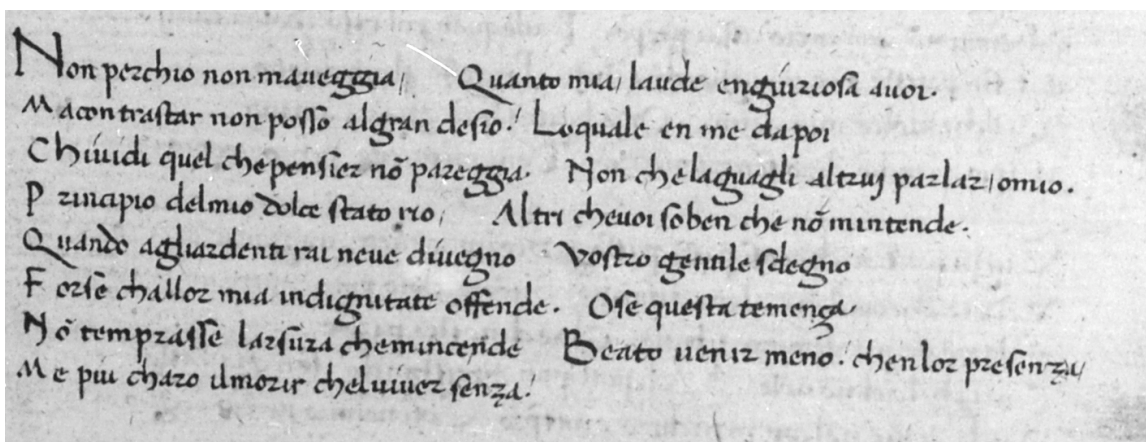 Non perchio non maveggia/ Quanto mia/ laude engiuriosa avoi.
Macontrastar non posso algran desio. Loquale en me dapoi
Chividi quel chepensier nō pareggia. Non chelaguagli altruj parlar/omio.
Principio delmio dolce stato rio/ Altri chevoi soben che nō mintende.
Quando agliardenti rai neve divegno Vostro gentile sdegno
Forse challor mia indignitate offende. Ose questa temença
Nō temprasse larsura chemincende Beato venir meno. chenlor presença/
Me piu charo ilmorir chelviver sença.